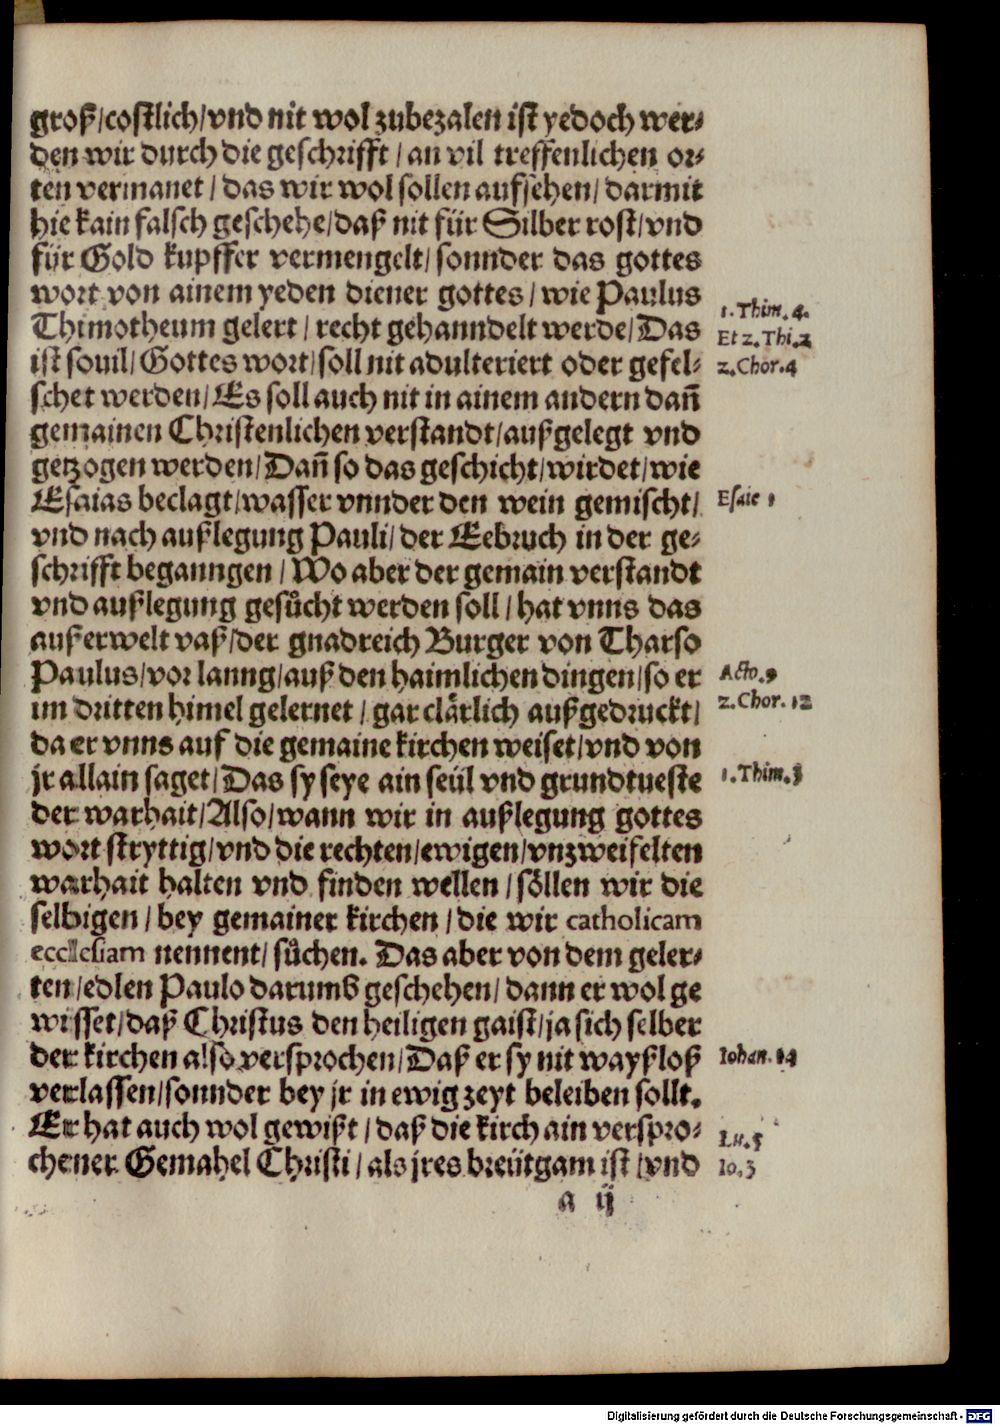 groß/costlich/vnd nit wol zubezalen ist yedoch wer⸗
den wir durch die geschrifft / an vil treffenlichen or⸗
ten vermanet / das wir wol sollen aufsehen/ darmit
hie kain falsch geschehe/daß nit für Silber rost/vnd
für Gold kupffer vermengelt/ sonnder das gottes
wort von ainem yeden diener gottes / wie Paulus
Thimotheum gelert / recht gehanndelt werde/ Das
ist souil/ Gottes wort/ soll nit adulteriert oder gefel⸗
schet werden/ Es soll auch nit in ainem andern dañ
gemainen Christenlichen verstandt/außgelegt vnd
getzogen werden/ Dañ so das geschicht/wirdet/wie
Esaias beclagt/wasser vnnder den wein gemischt/
vnd nach außlegung Pauli/ der Eebruch in der ge⸗
schrifft begangen / Wo aber der gemain verstandt
vnd außlegung gesůcht werden soll / hat vnns das
außerwelt vaß/der gnadreich Burger von Tharso
Paulus/vor lanng/auß den haimlichen dingen/so er
im dritten himel gelernet / gar clärlich außgedruckt/
da er vnns auf die gemaine kirchen weiset/vnd von
jr allain saget/ Das sy seye ain seül vnd grundtueste
der warhait/Also/wann wir in außlegung gottes
wort stryttig/vnd die rechten/ewigen/vnzweifelten
warhait halten vnd finden wellen / söllen wir die
selbigen / bey gemainer kirchen / die wir catholicam
ecclesiam nennent/ sůchen. Das aber von dem geler⸗
ten/edlen Paulo darumb geschehen/ dann er wol ge
wisset/daß Christus den heiligen gaist/ja sich selber
der kirchen also versprochen/Daß er sy nit wayßloß
verlassen/sonnder bey jr in ewig zeyt beleiben sollt.
Er hat auch wol gewißt / daß die kirch ain verspro⸗
chener Gemahel Christi / als jres breütgam ist /vnd
a ij
1. Thim. 4.
Et 2. Thi. 2
2. Chor. 4
Esaie 1
Acto. 9
2. Chor. 12
1. Thim. 3
Iohan. 14
Lu. 5
Io. 3
Digitalisierung gefördert durch die Deutsche Forschungsgemeinschaft - DFG